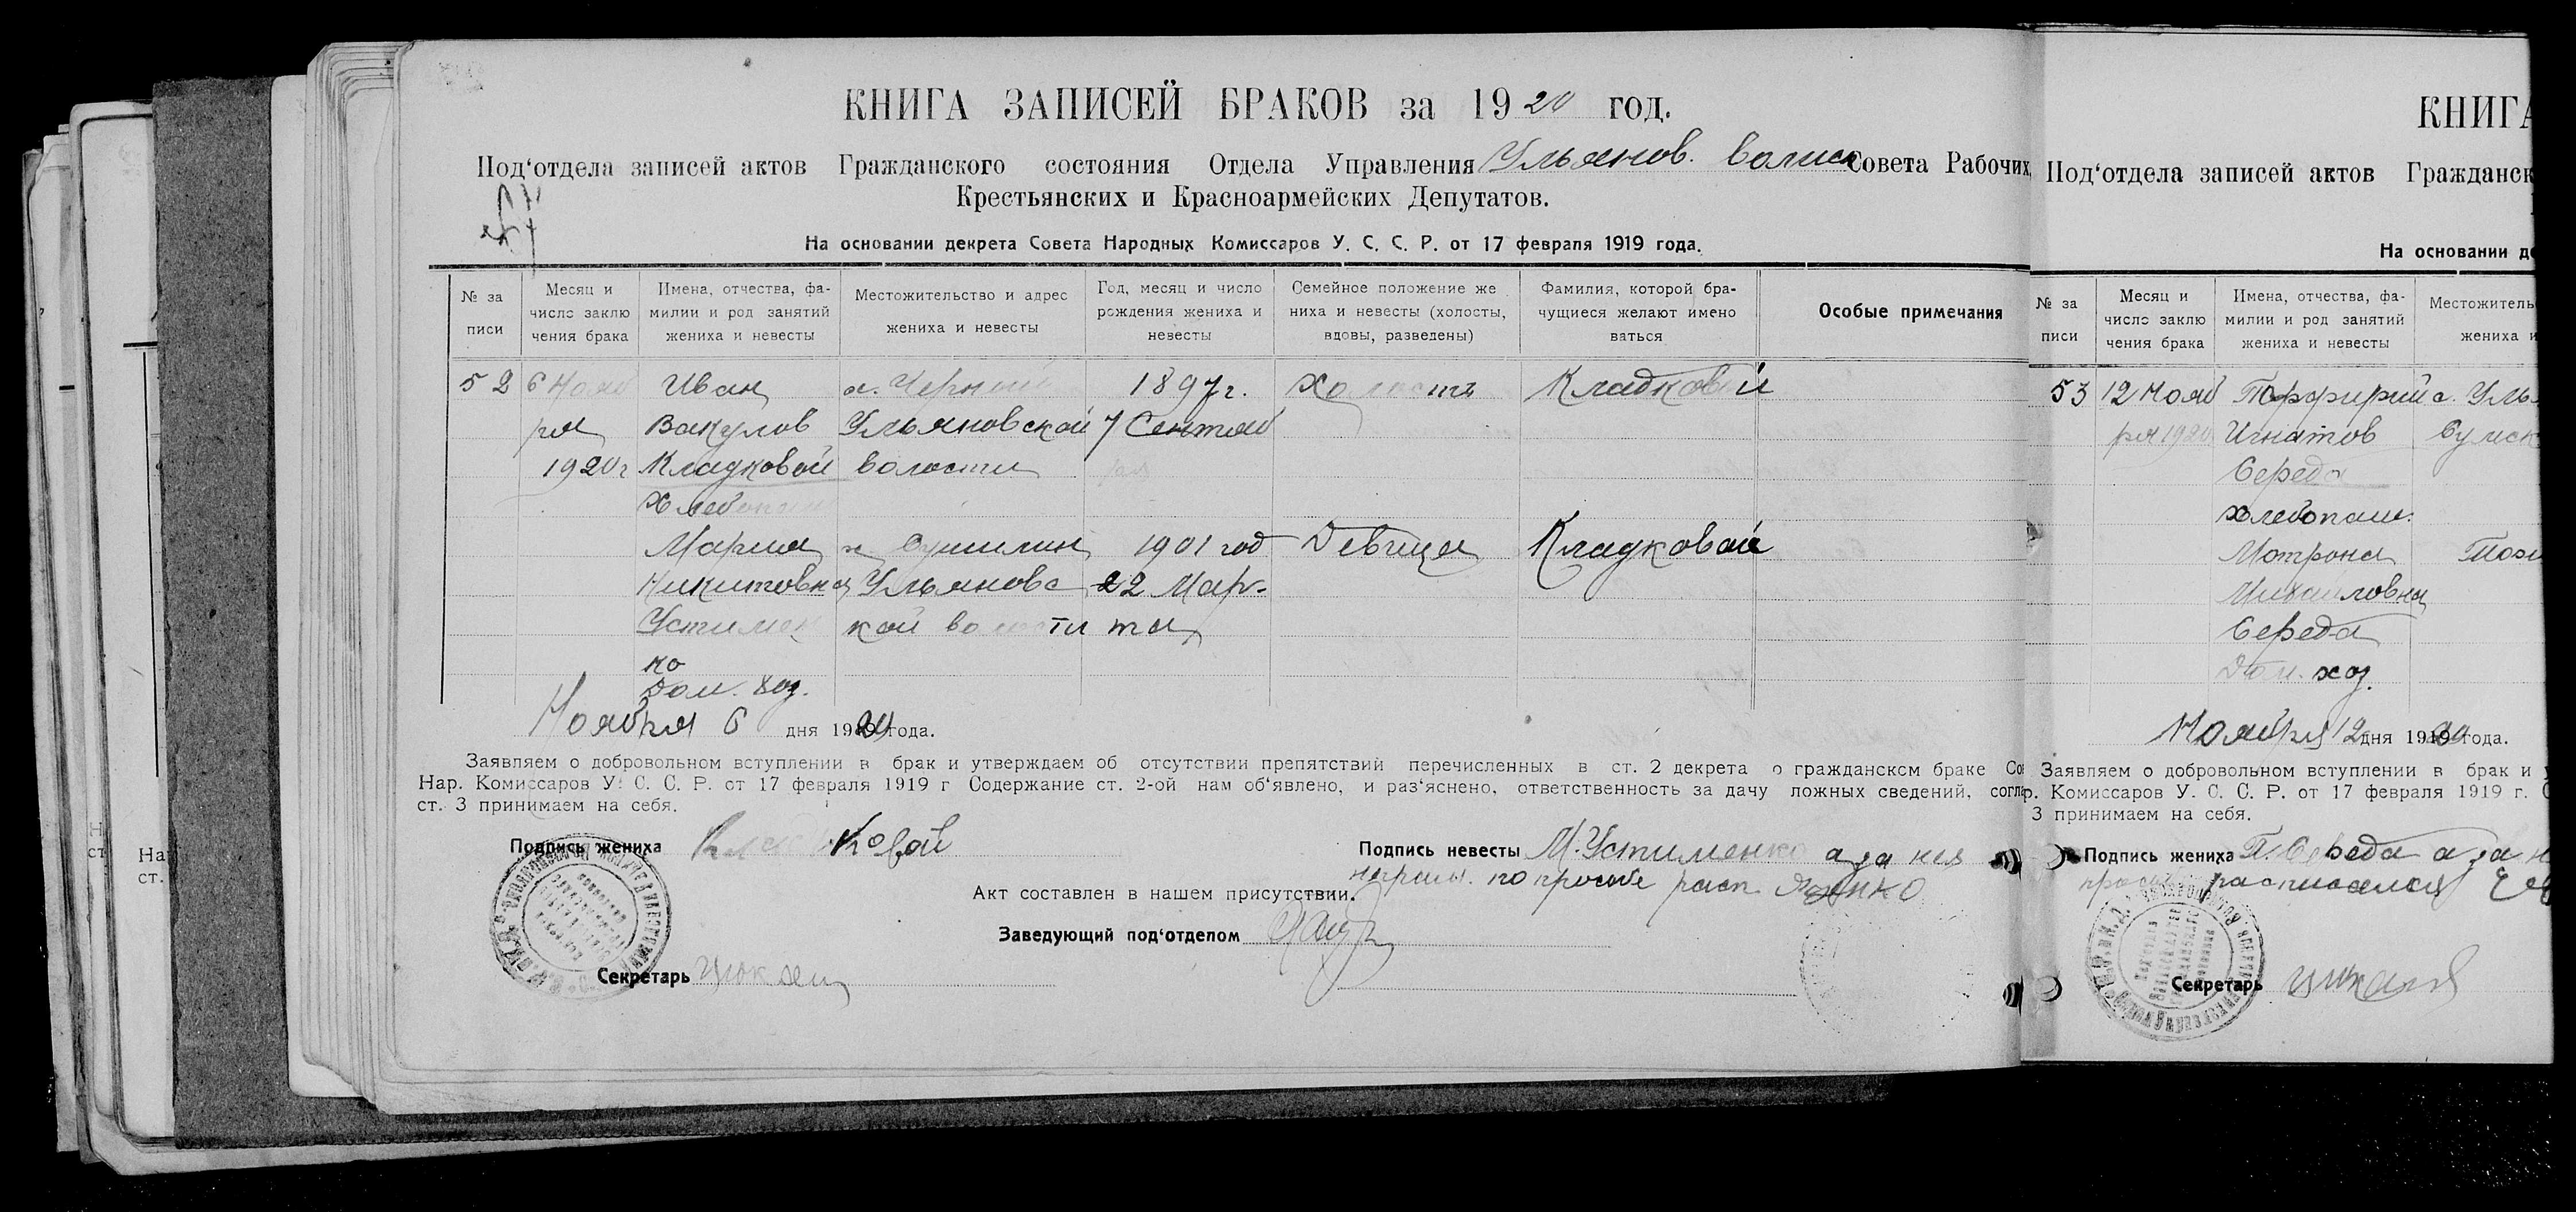 КНИГА ЗАПИСЕЙ БРАКОВ за 1920 год.
Под‘отдела записей актов Гражданского состояния Отдела Управления Ульянов. Совета Рабочих,
Крестьянских и Красноармейских Депутатов.
На основании декрета Совета Народных Комиссаров У. С. С. Р. от 17 февраля 1919 года.
№ за писи
Месяц и число заклю чения брака
Имена, отчества, фа- милии и род занятий жениха и невесты
Местожительство и адрес жениха и невесты
Год, месяц и число рождения жениха и невесты
Семейное положение же ниха и невесты (холосты, вдовы, разведены)
Фамилия, которой бра- чущиеся желают имено ваться
Особые примечания
52 6 Нояб Иван х. 1897 г. Холостъ Кладковой
ря Вакулов Ульяновской 7 Сентяб
1920 г Кладковой волости ря
Хлебопаш
Мария х 1901 год Девица Кладковой
Никитовна Ульяновс 22 Мар-
Устимен кой волости та
ко
Дом. хоз.
Ноября 6 дня 1920 года.
Заявляем о добровольном вступлении в брак и утверждаем об отсутствии препятствий перечисленных в ст. 2 декрета о гражданском браке Со
Нар. Комиссаров У. С. С. Р. от 17 февраля 1919 г Содержание ст. 2-ой нам об‘явлено, и раз‘яснено, ответственность за дачу ложных сведений, согла
ст. 3 принимаем на себя.
Подпись жениха Кладковой
Подпись невесты М. Устименко а за нея
неграм. по просьбе расп.
Акт составлен в нашем присутствии.
Заведующий под‘отделом
Секретарь
КНИГА
Под‘отдела записей актов Гражданск
На основании де
№ за писи
Месяц и число заклю чения брака
Имена, отчества, фа- милии и род занятий жениха и невесты
Местожитель жениха и
53 12 Нояб Порфирий с. Уль
ря 1920 Игнатов Сумск
Середа
хлебопаш.
Мотрона Тож
Михайловна
Середа
Дом. хоз.
Ноября 12 дня 1920 года.
Заявляем о добровольном вступлении в брак и у
р. Комиссаров У. С. С. Р. от 17 февраля 1919 г. С
3 принимаем на себя.
Подпись жениха П. Середа а за н
расписался
Секретарь
На
ст.